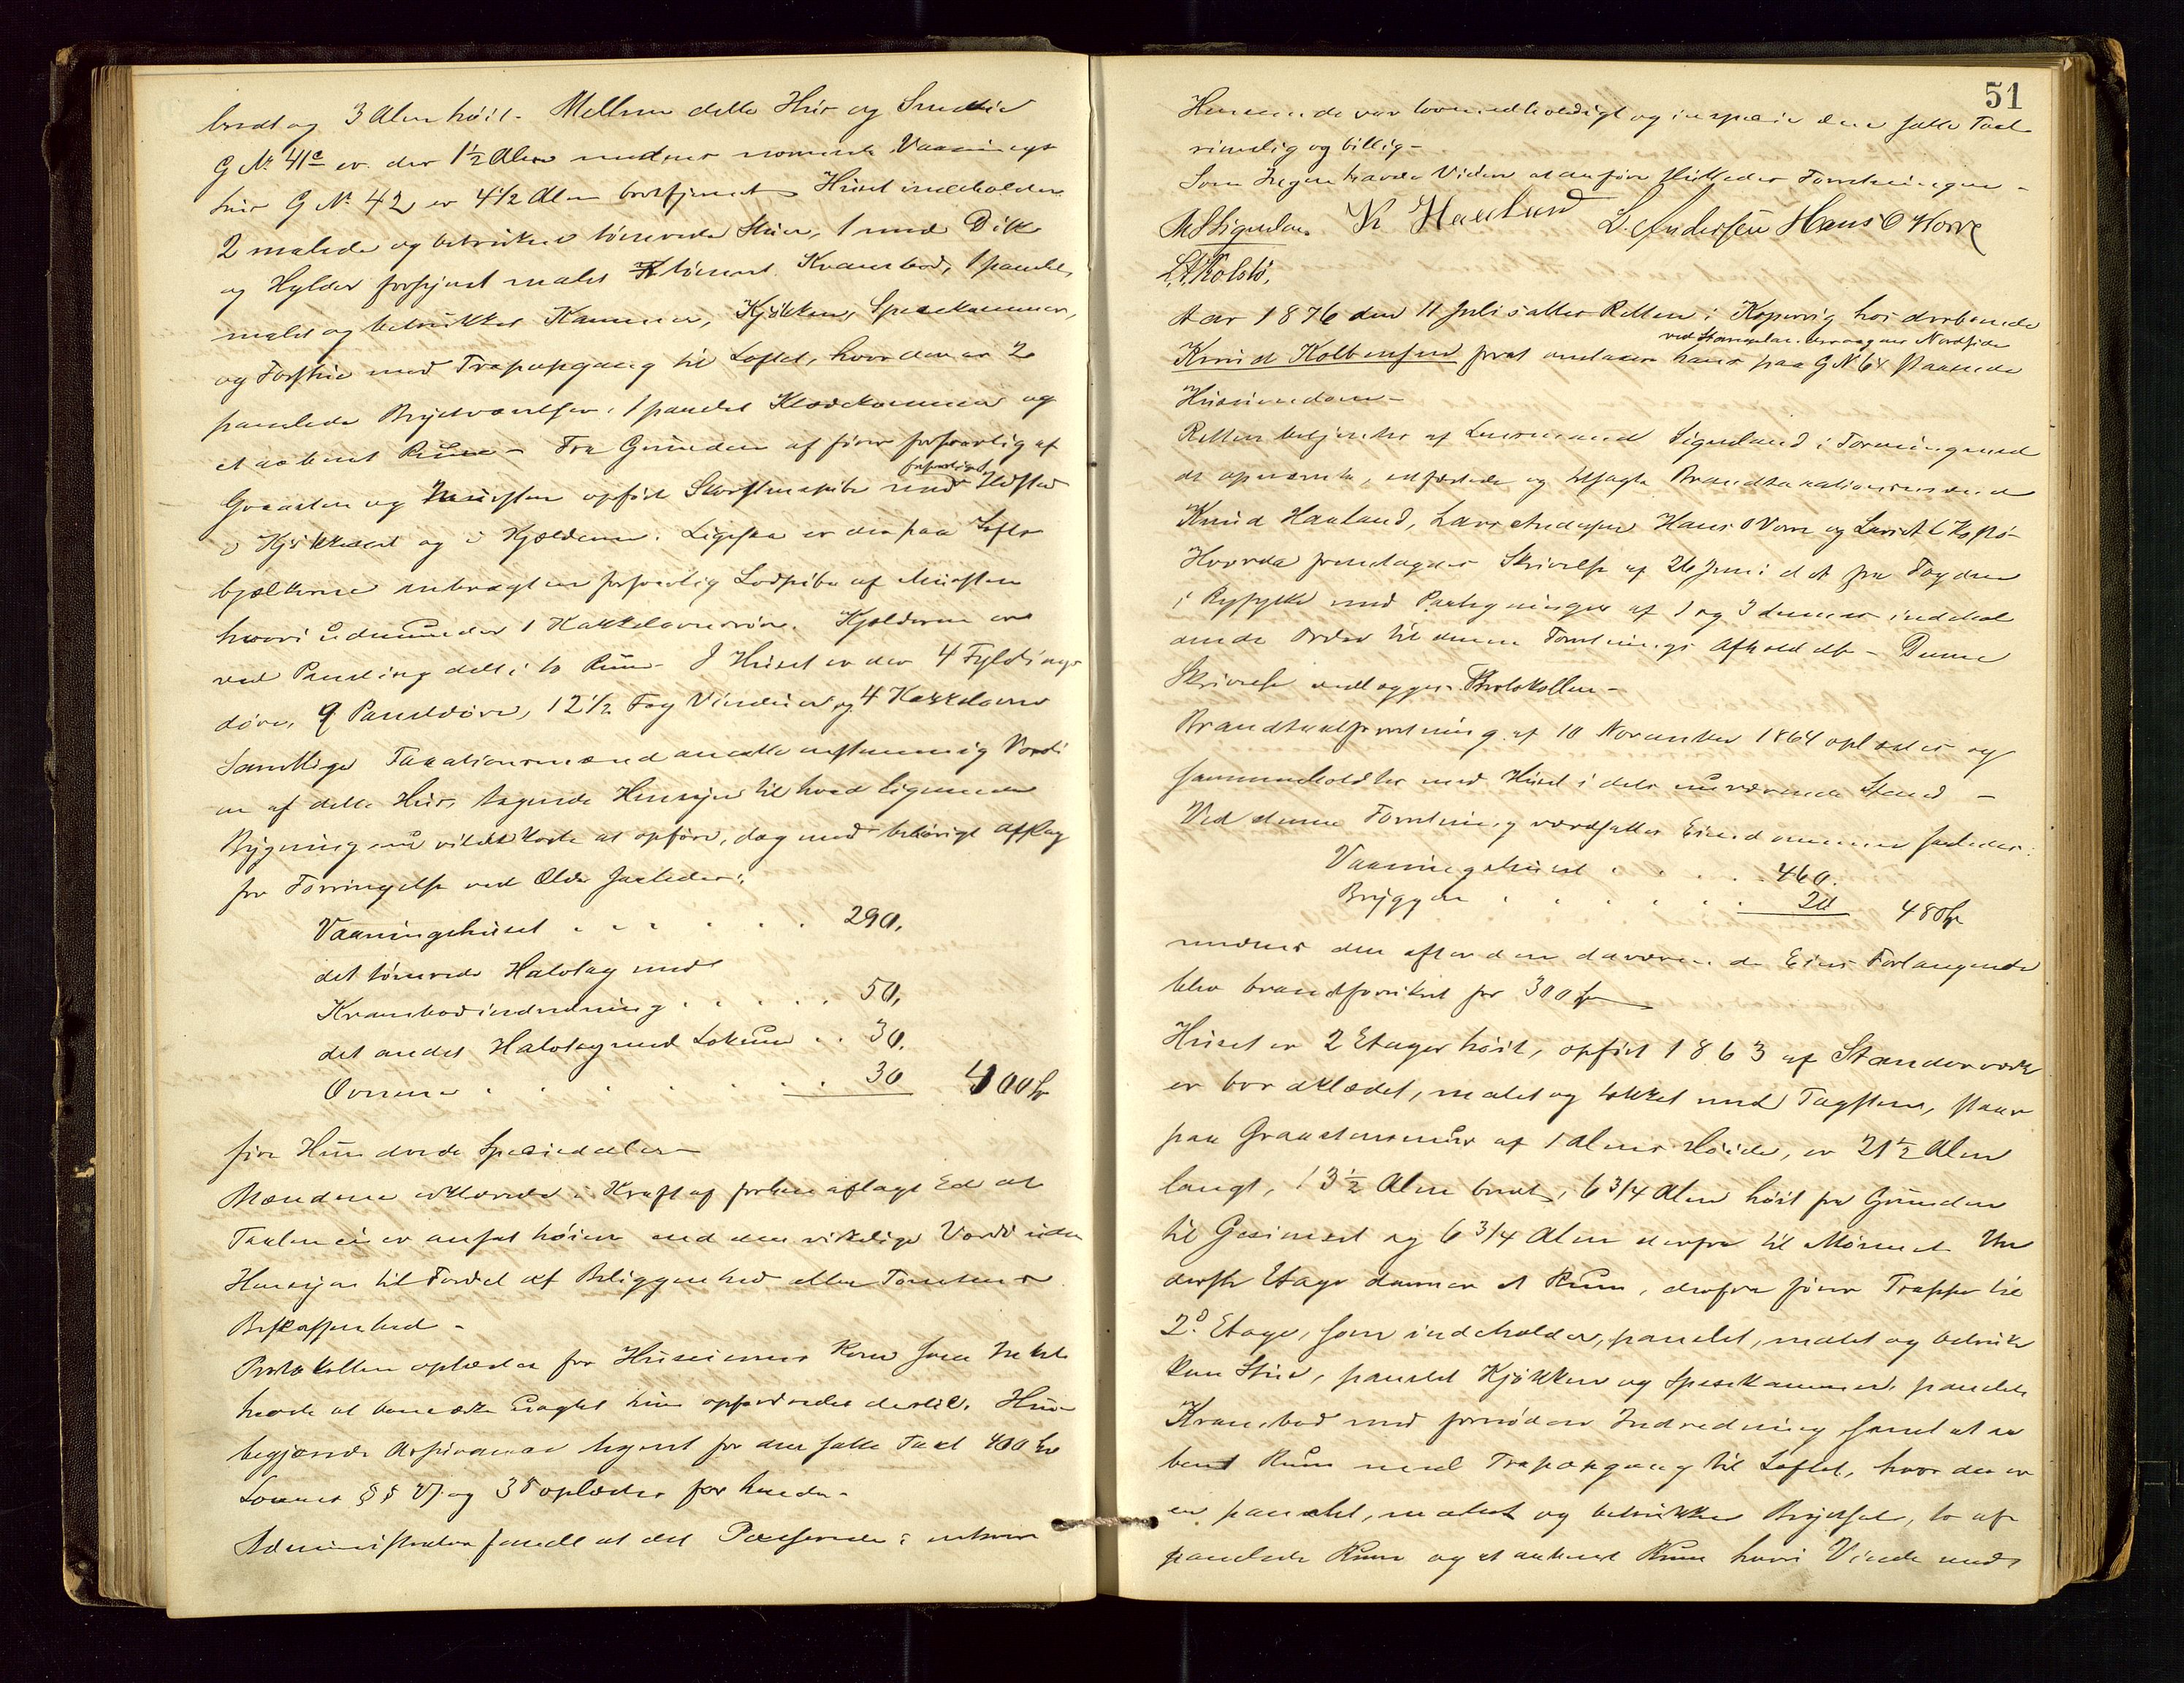 bredt og 3 Alen höit. Mellem dette Hus og Smedie
G No 41c er der 1½ Alen medens nærmeste Vaanings-
hus G No 42 er 4½ Alen bortfjernet. Huset indeholder
2 malede og betrukne tömrede Stuer, 1 med Disk
og Hylder forsynet malet tömret Krambod, 1 panelet,
malet og betrukket Kammer, Kjökken, Spisekammer,
og Forstue med Trapopgang til Loftet, hvor der er 2
panelede Brystværelser, 1 panelet Klædekammer og
et aabent Rum - Fra Grunden af förer forsvarlig af
Graasten og Mursten opfört Skorstenspibe med forsvarligt Ildsted
i Kjökkenet og i Kjelderen. Ligesaa er der paa Lofts
bjelkerne anbragt en forsvarlig Lodpibe af Mursten
hvori udmunder 1 Kakkelovnsrör. Kjelderen er
ved Paneling delt i to Rum - I Huset er der 4 Fyldings
döre, 9 Paneldöre, 12½ Fag Vinduer og 4 Kakkelovne
Samtlige Taxationsmænd ansatte enstemmig Værdi
en af dette Hus, tagende Hensyn til hvad lignende
Bygning nu vilde koste at opföre, dog med behörigt Afslag
for Forringelse ved Ælde saaledes:
Vaaningshuset . . . . . . . 290.
det tömrede Halvtag med
Krambodindredning . . . . . 50.
det andet Halvtag med Lokum . . 30.
Ovnene . . . . . . . 30 400 Sp
fire Hundrede Speciedaler
Mændene erklærede i Kraft af forhen aflagt Ed at
Taxten ei er ansat höiere end den virkelige Værdi uden
Hensyn til Fordel af Beliggenhed eller Tomtens
Beskaffenhed -
Protokollen oplæstes for Huseierens Kone som Intet
havde at bemærke uagtet hun opfordredes dertil. Hun
begjærede Assurancen tegnet for den satte Taxt 400 Sp
Lovens §§ 27 og 35 oplæstes for hende.
Administrator fandt at det Passerede i enhver
51
Henseende var lovmedholdigt og in specie den satte Taxt
rimelig og billig -
Som Ingen havde Videre at anföre sluttedes Forretningen -
M S Sigveland K Haaland L. Andersen Hans O Vorre
L. A Kolstö,
Aar 1876 den 11 Juli sattes Retten i Kopervig hos drabende
Knud Kolbensen for at omtaxere hans paa G No 64 ved Nordside staaende
Huseiendom -
Retten betjentes af Lensmand Sigveland i Forening med
de opnævnte, edfæstede og tilsagte Brandtaxationsmænd
Knud Haaland, Lars Andersen Hans O Vorre og Lars A Kolstö -
Hvorda fremlagdes Skrivelse af 26 Juni d A fra Fogden
i Ryfylke med Paategninger af 1 og 3 dennes indehol
dende Ordre til denne Forretnings Afholdelse - Denne
Skrivelse vedlægges Protokollen -
Brandtaxtforretning af 10 November 1864 oplæstes og
sammenholdtes med Huset i dets nuværende Stand -
Ved denne Forretning værdsattes Eiendommen saaledes:
Vaaningshuset . . . . . 460.
Bryggen . . . . . . 20 480 Sp
medens den efter den daværende Eiers Forlangende
blev brandforsikret for 300 Sp
Huset er 2 Etager höit, opfört 1863 af Standerværk
er bordklædet, malet og tækket med Tagsten, staar
paa Graastensmur af 1 Alens Höide, er 21½ Alen
langt, 13½ Alen bredt, 6 3/4 Alen höit fra Grunden
til Gesimset og 6 3/4 Alen derfra til Mönnet. Un
derste Etage danner et Rum, derfra förer Trappe til
2d Etage, som indeholder, panelet, malet og betruk
ken Stue, panelet Kjökken og Spisekammer, panelet
Krambod med fornöden Indredning samt et aa
bent Rum med Trapopgang til Loftet, hvor der er
en panelet, malet og betrukken Brystsal, to af
panelede Rum og et aabent Rum hvori Vinde med